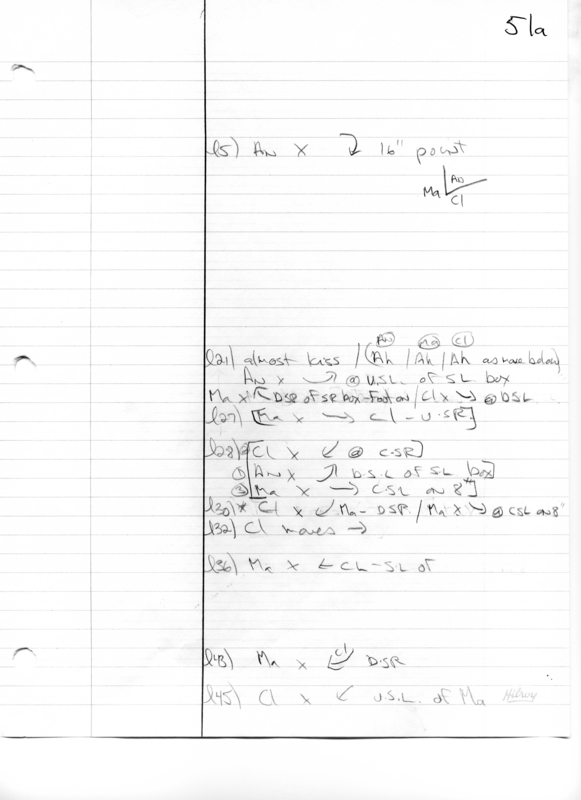 51a
l5) AN X ↷ 16" point
Ma AN Cl
AN Ma Cl
l21) almost kiss / (Ah / Ah / Ah as move below)
AN X ↗ @ U.S.L. of SL box
Ma X ↖ DSR of SR box-Foot on / Cl X ↘ @ DSL
l27) [Ma X → Cl - U.SR]
l28) ② [Cl X ↙ @ C-SR]
① [AN X ↗ D.S.L of SL box]
③ [Ma X → CSL on 8"]
l30) * Cl X ↙ Ma - DSR / Ma X ↘ @ CSL on 8"
l32) Cl moves →
l36) Ma X ← CL - SL of
l43) Ma X Cl D.SR
l45) Cl X ↙ U.S.L. of Ma Hilroy